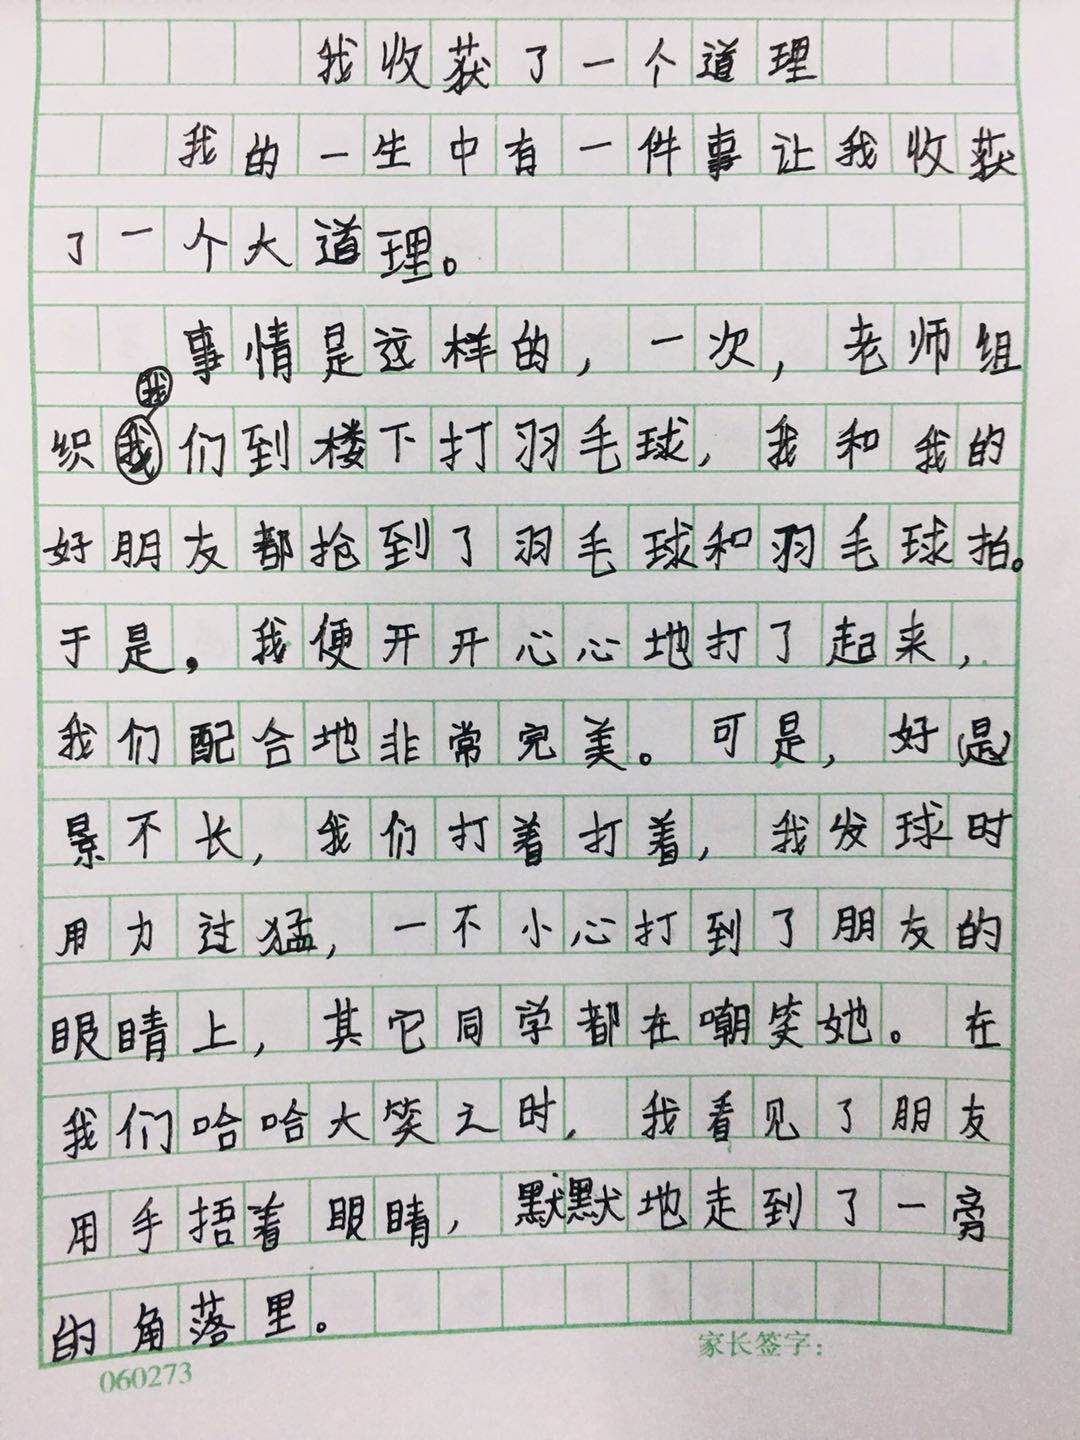 我收获了一个道理
我的一生中有一件事让我收获
了一个大道理。
事情是这样的，一次，老师组
我
织我们到楼下打羽毛球，我和我的
好朋友都抢到了羽毛球和羽毛球拍。
于是，我便开开心心地打了起来，
我们配合地非常完美。可是，好是
景不长，我们打着打着，我发球时
用力过猛，一不小心打到了朋友的
眼睛上，其它同学都在嘲笑她。在
我们哈哈大笑之时，我看见了朋友
用手捂着眼睛，默默地走到了一旁
的角落里。
家长签字：
060273